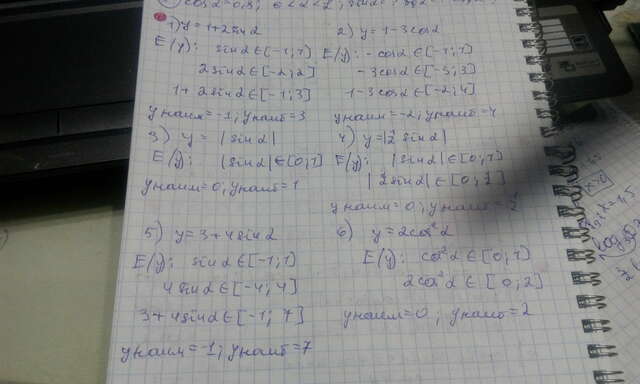 1) y = 1 + 2 sin α
E(y): sin α ∈ [-1; 1]
2 sin α ∈ [-2; 2]
1 + 2 sin α ∈ [-1; 3]
y наим = -1; y наиб = 3
2) y = 1 - 3 cos α
E(y): - cos α ∈ [-1; 1]
- 3 cos α ∈ [-3; 3]
1 - 3 cos α ∈ [-2; 4]
y наим = -2; y наиб = 4
3) y = | sin α |
E(y): | sin α | ∈ [0; 1]
y наим = 0, y наиб = 1
4) y = | 2 sin α |
E(y): | sin α | ∈ [0; 1]
| 2 sin α | ∈ [0; 2]
y наим = 0; y наиб = 2
5) y = 3 + 4 sin α
E(y): sin α ∈ [-1; 1]
4 sin α ∈ [-4; 4]
3 + 4 sin α ∈ [-1; 7]
y наим = -1; y наиб = 7
6) y = 2 cos² α
E(y): cos² α ∈ [0; 1]
2 cos² α ∈ [0; 2]
y наим = 0; y наиб = 2